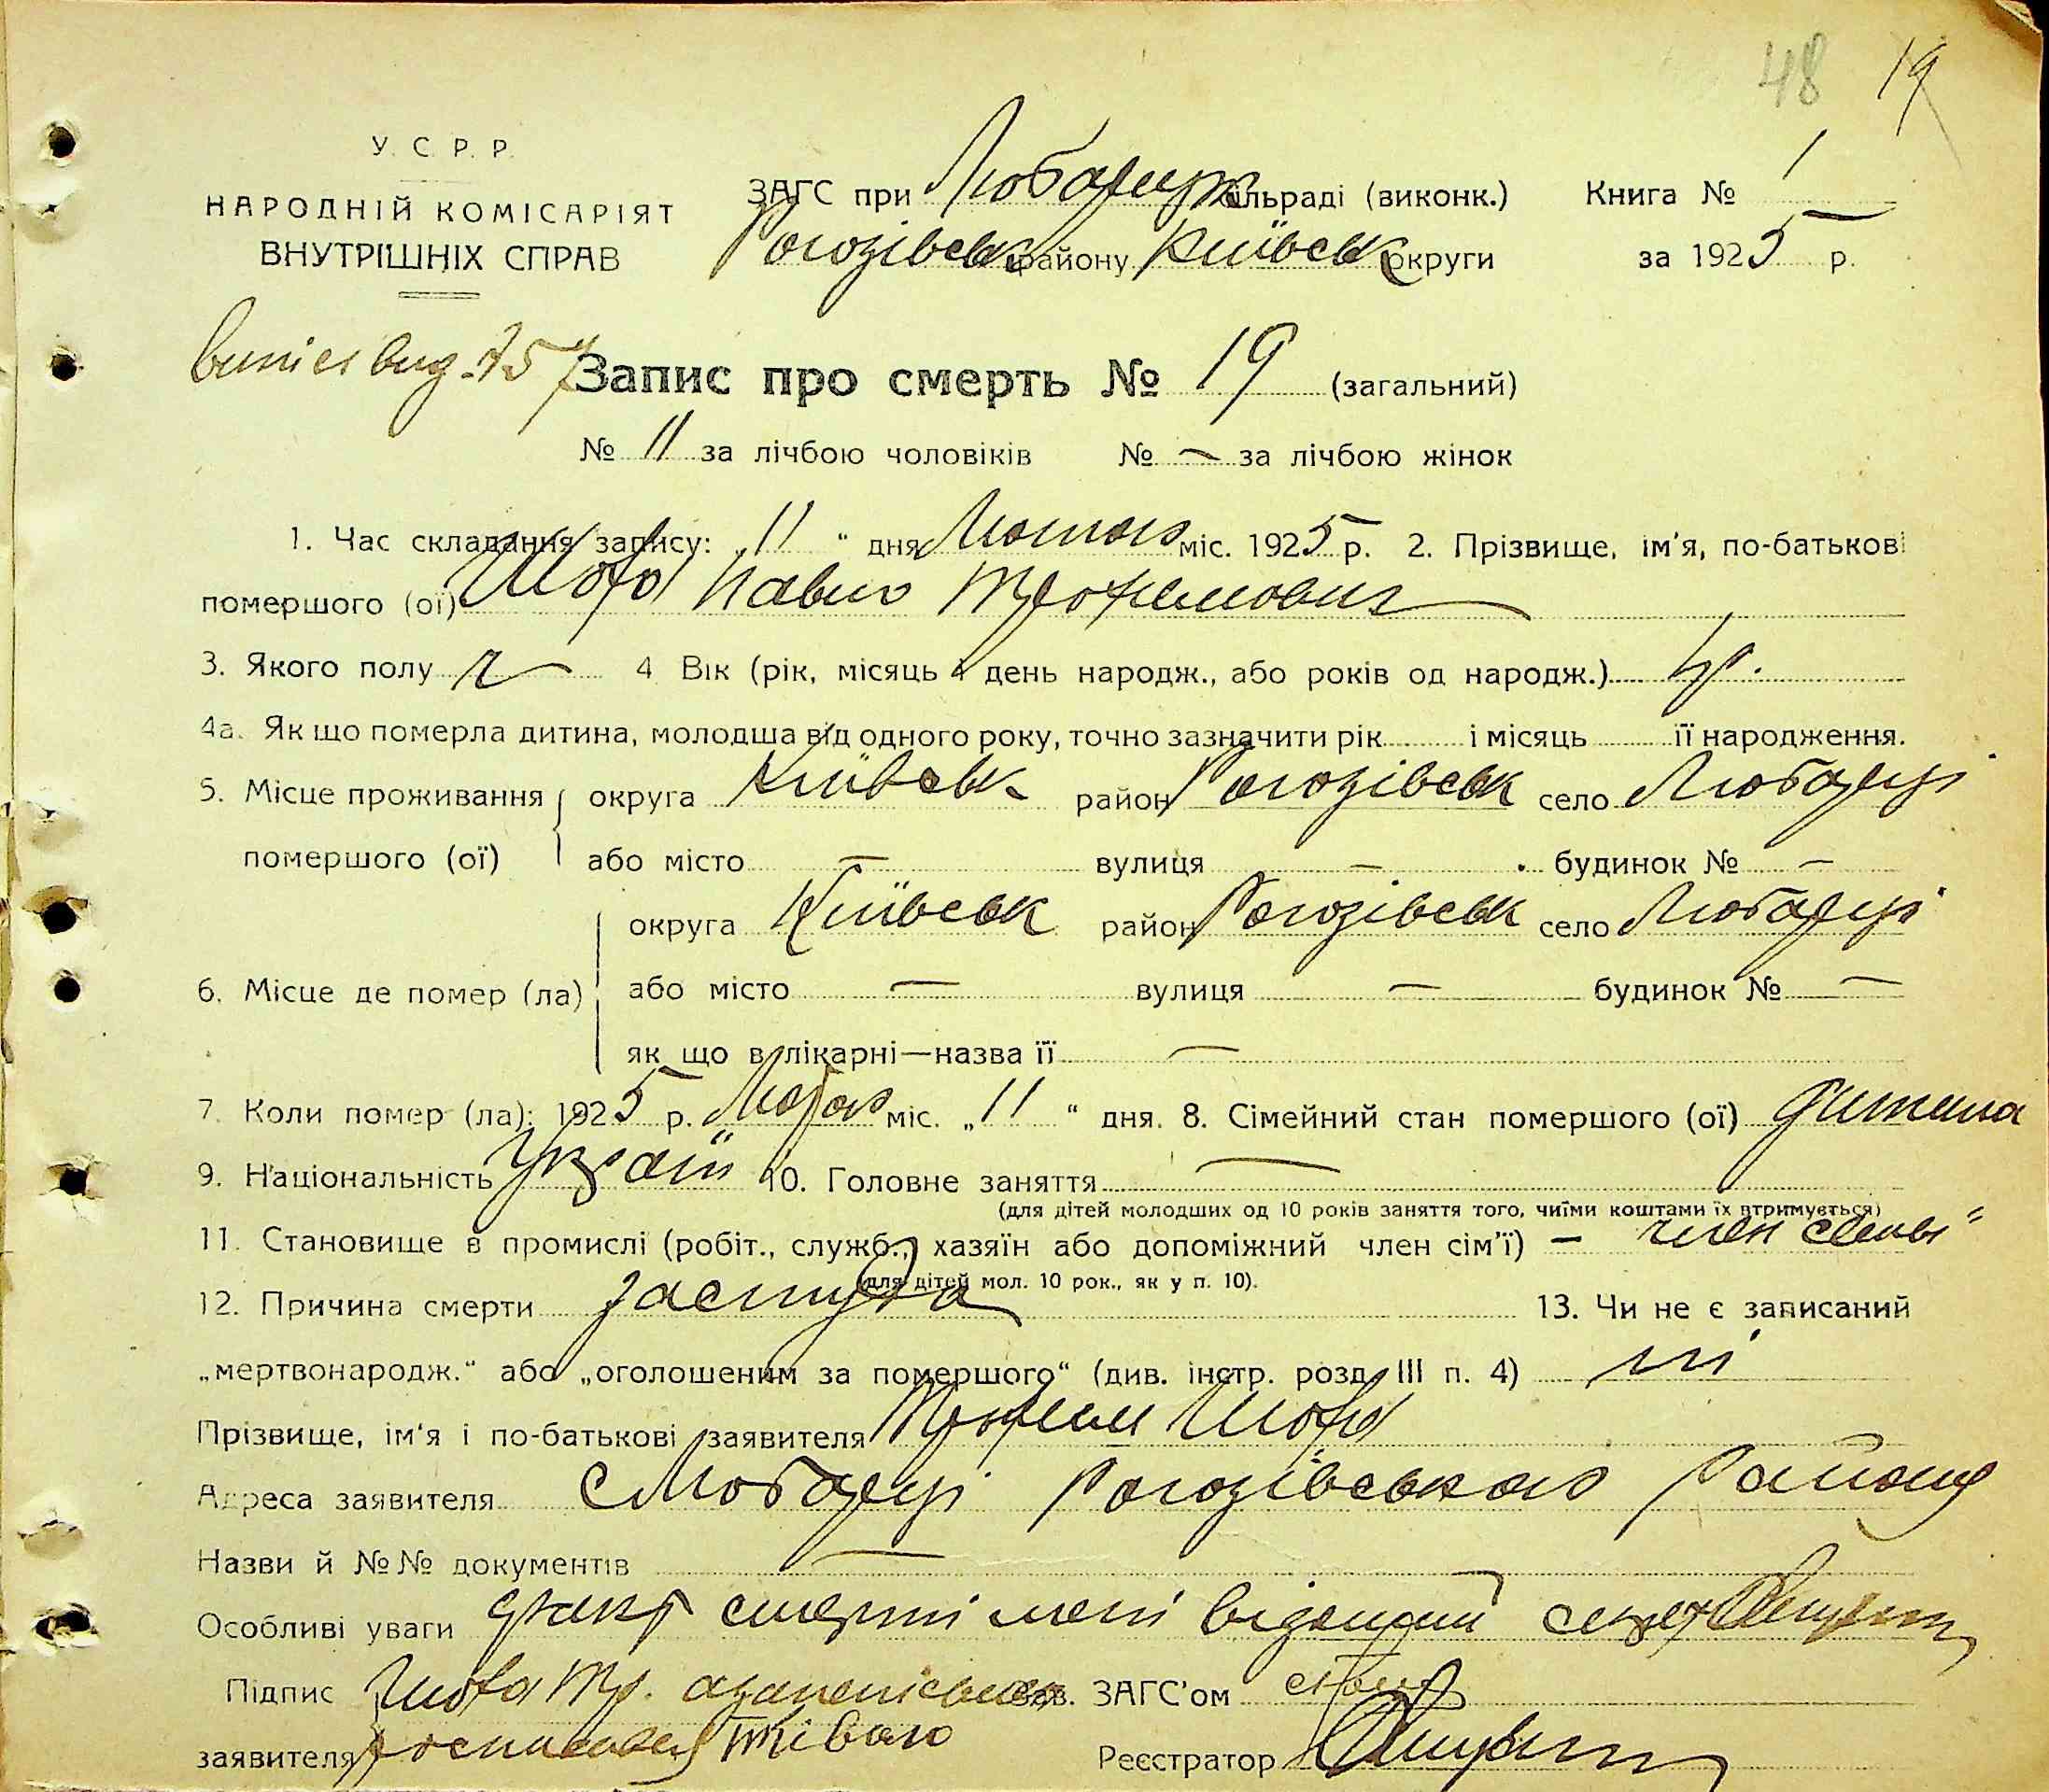 48 19
У. С. Р. Р.
НАРОДНІЙ КОМІСАРІЯТ
ВНУТРІШНІХ СПРАВ
ЗАГС при Любарец сільраді (виконк.)
Рогозівськ району Київськ округи
Книга № 1
за 1925 р.
757
Запис про смерть № 19 (загальний)
№ 11 за лічбою чоловіків № — за лічбою жінок
1. Час складання запису: „11“ дня Лютого міс. 1925 р. 2. Прізвище, ім'я, по-батькові
помершого (ої) Шофа Павло Трохимович
3. Якого полу ч 4 Вік (рік, місяць і день народж., або років од народж.)
4а. Як що померла дитина, молодша від одного року, точно зазначити рік і місяць її народження.
5. Місце проживання округа Київськ район Рогозівськ село Любарці
помершого (ої) або місто — вулиця — будинок № —
округа Київськ район Рогозівськ село Любарці
6. Місце де помер (ла) або місто — вулиця — будинок № —
як що в лікарні—назва її —
7. Коли помер (ла): 1925 р. Лютого міс. „11“ дня. 8. Сімейний стан помершого (ої) дитина
9. Національність Україн 10. Головне заняття —
(для дітей молодших од 10 років заняття того, чиїми коштами їх втримується)
11. Становище в промислі (робіт., служб., хазяїн або допоміжний член сім'ї) — член семьі
(для дітей мол. 10 рок., як у п. 10).
12. Причина смерти застуда 13. Чи не є записаний
„мертвонародж.“ або „оголошеним за помершого“ (див. інстр. розд. III п. 4) ні
Прізвище, ім'я і по-батькові заявителя Трохим Шофа
Адреса заявителя с Любарці Рогозівського Району
Назви й №№ документів —
Особливі уваги факт смерті мені відомий секр
Підпис Шофа Тр. Зав. ЗАГС'ом
заявителя Реєстратор